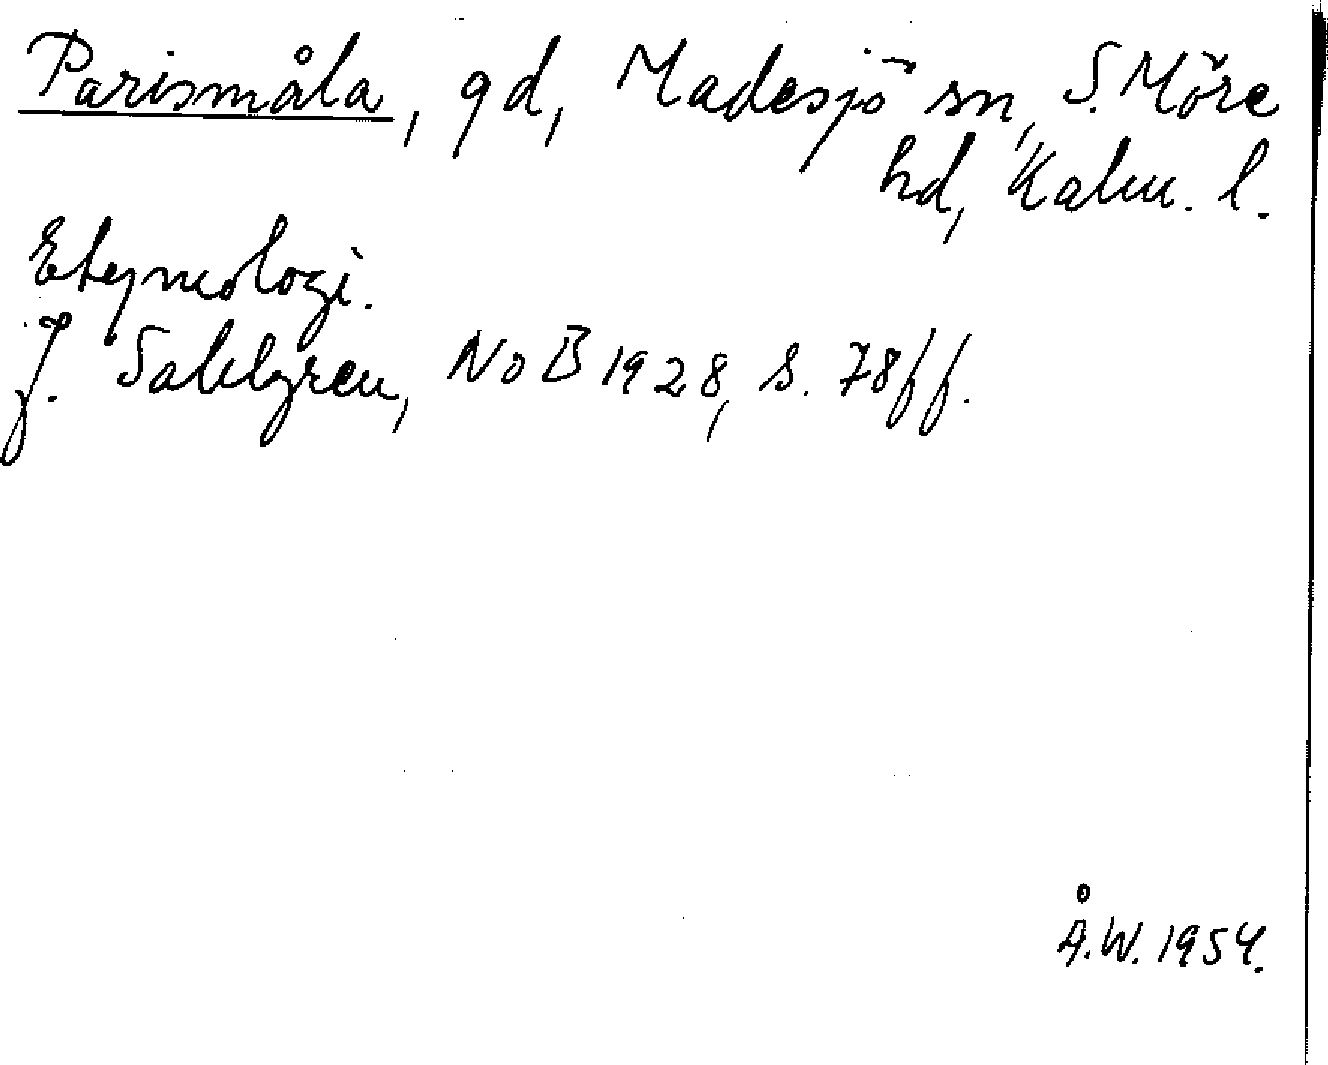 Parismåla, gd, Madesjö sn, S. Möre
hd, Kalm. l.
Etymologi.
J. Sahlgren, NoB 1928, s. 78ff.
Å.W. 1954.